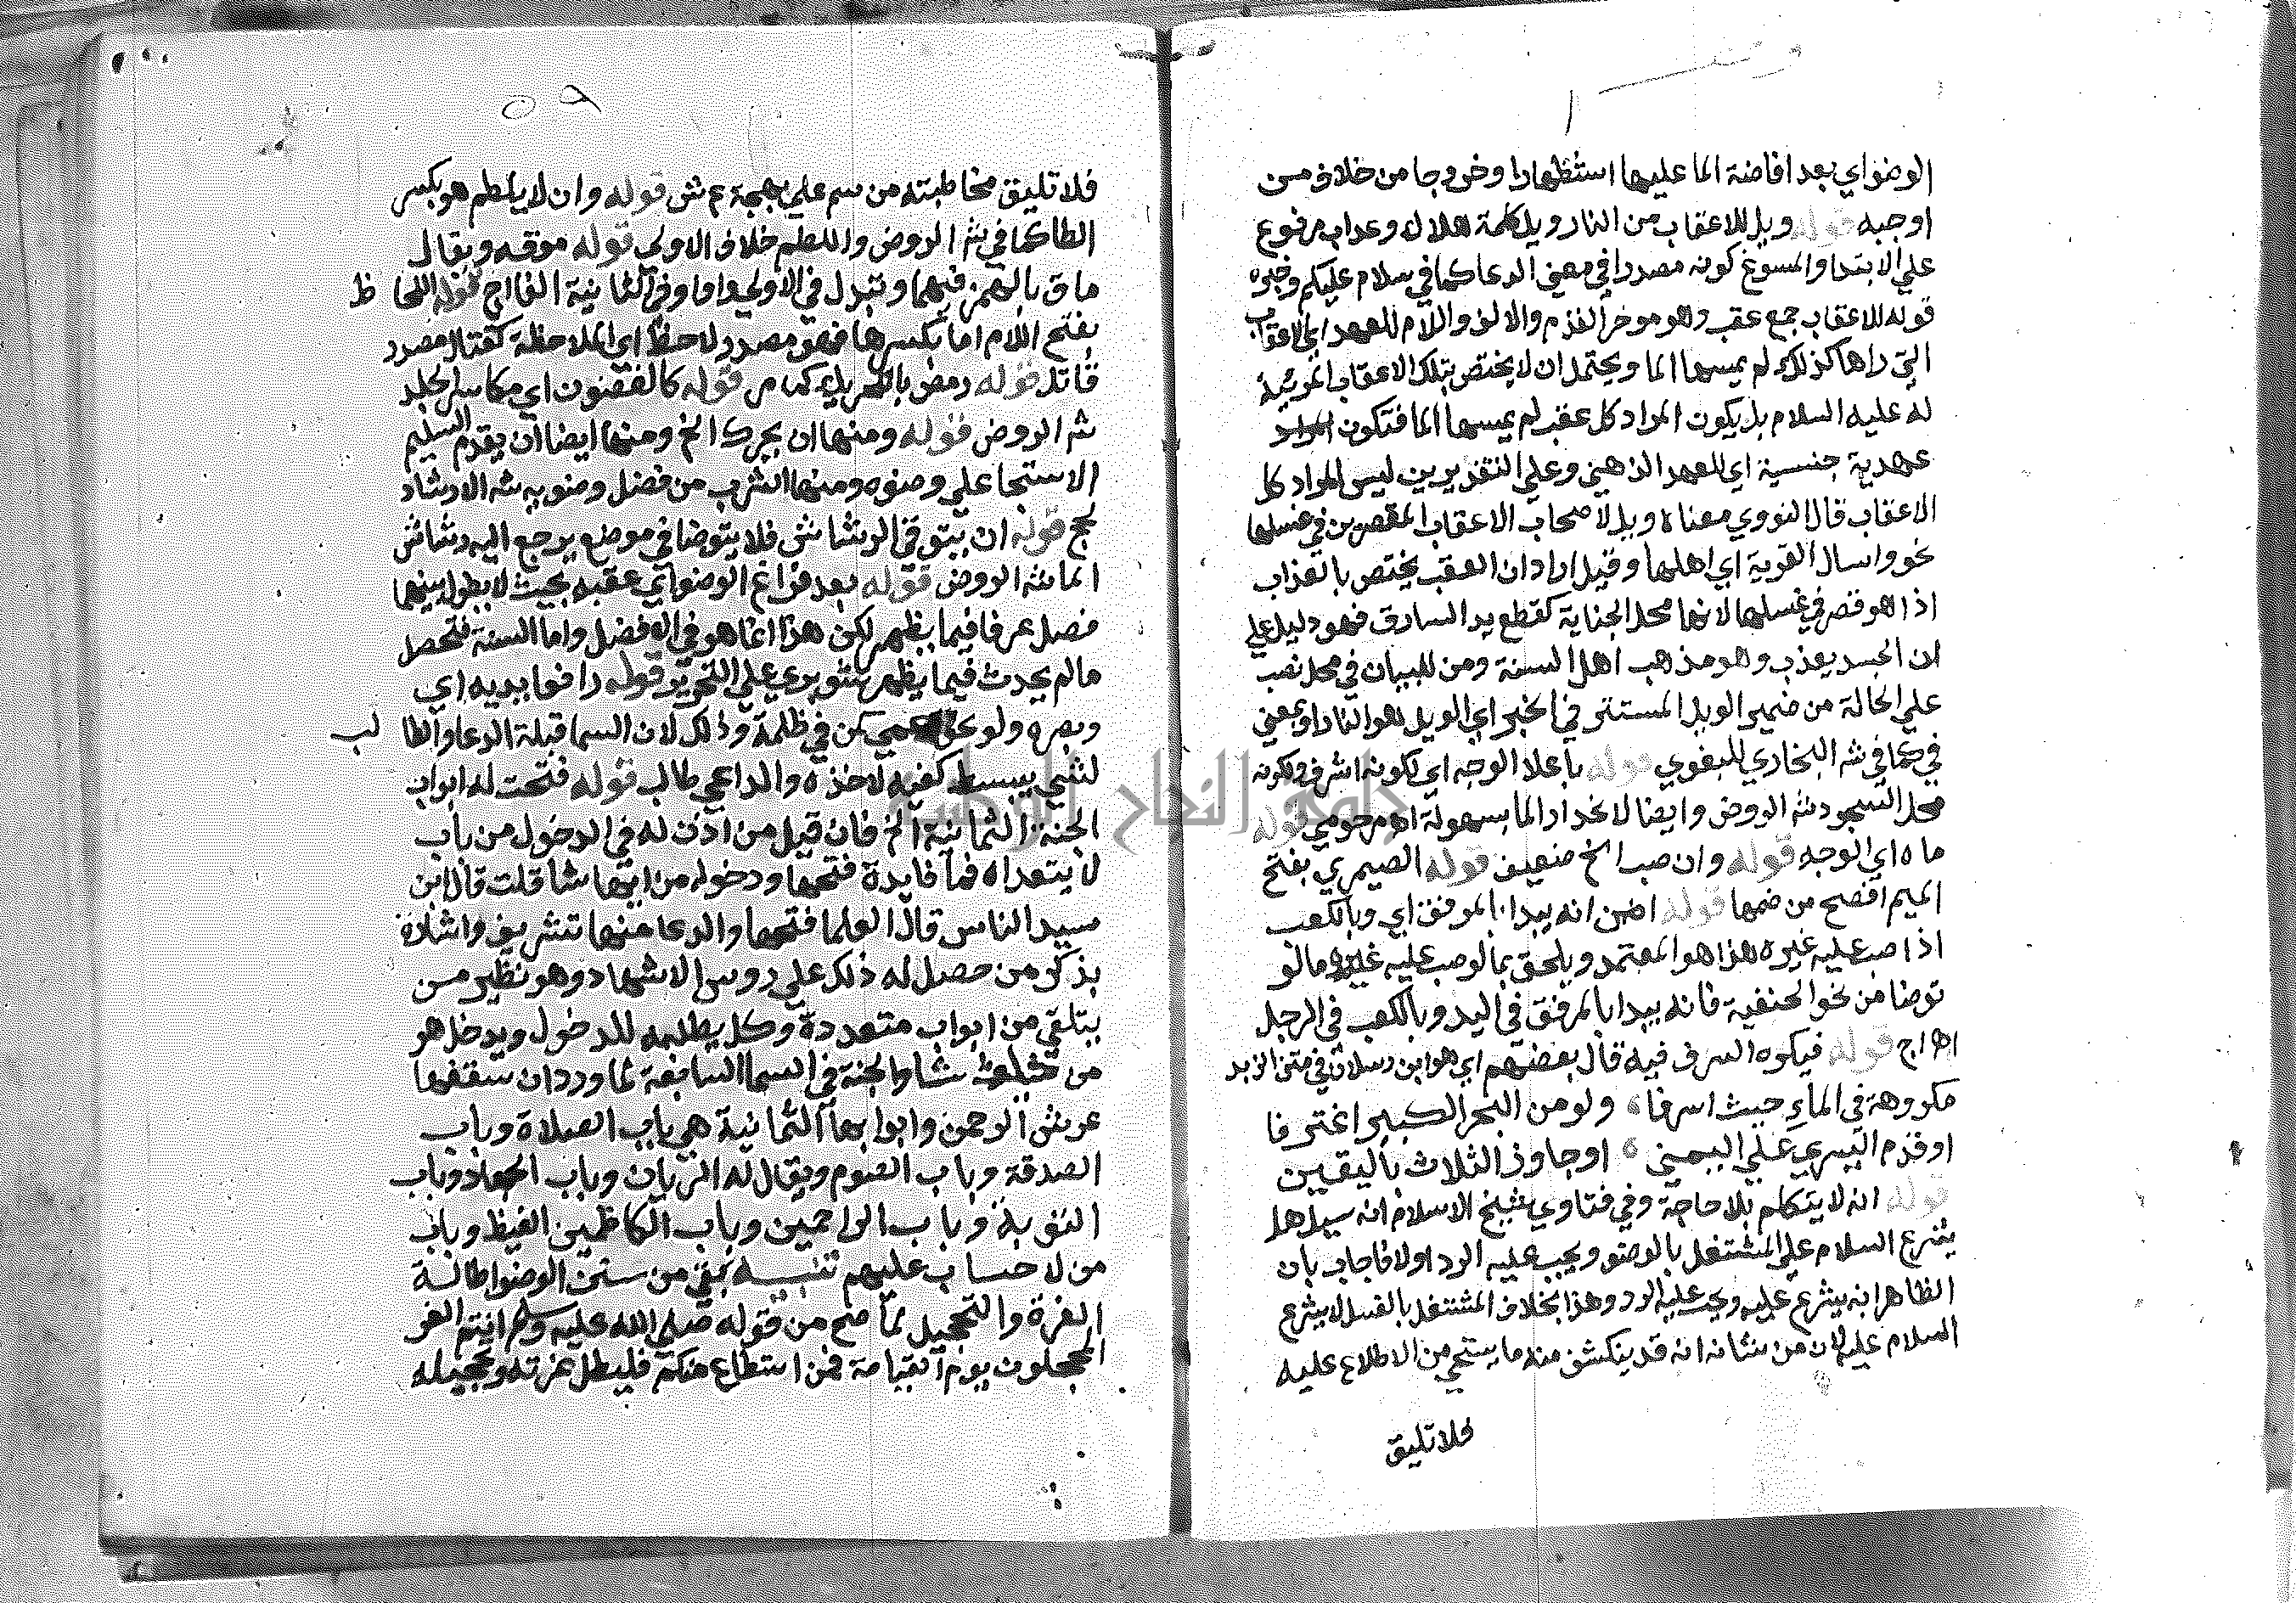 الوضو اي بعد افاضة الما عليها استظهارا وخروجا من خلاف من
اوجبه قوله ويل للاعقاب من النار ويل كلمة هلاك وعداب مرفوع
علي الابتدا والمسوغ كونه مصدرا في معني الدعا كما في سلام عليكم وخبره
قوله للاعقاب جمع عقب وهو موخر القدم والالف واللام للعهد اي الاعقاب
التي راها كذلك لم يمسها الما ويحتمل ان لا يختص بتلك الاعقاب المرئية
له عليه السلام بل يكون المراد كل عقب لم يمسها الما فتكون
عهدية جنسية اي للعهد الذهني وعلي التقديرين ليس المراد كل
الاعقاب قال النووي معناه ويل لاصحاب الاعقاب المقصرين في غسلها
نحو واسال القرية اي اهلها وقيل اراد ان العقب يختص بالعذاب
اذا هو قصر في غسلها لانها محل الجناية كقطع يد السارق فهو دليل علي
ان الجسد يعذب وهو مذهب اهل السنة ومن للبيان في محل نصب
علي الحالة من ضمير الويل المستتر في الخبر اي الويل لهو النار او بمعني
في كما في شر البخاري للبغوي قوله باعلا الوجه اي لكونه اشرف ولكونه
محل السجود شر الروض وايضا لانحدار الما بسهولة اه مرحومي قوله
ماه اي الوجه قوله وان صب الخ ضعيف قوله الصيمري بفتح
الميم افصح من ضمها قوله انه يبدا بالمرفق اي وبالكعب
اذا صب عليه غيره هذا هو المعتمد ويلحق بما لو صب عليه غيره ما لو
توضا من نحو الحنفية فانه يبدا بالمرفق في اليد وبالكعب في الرجل
اه اج قوله فيكره السرف فيه قال بعضهم اي هو ابن رسلان في متن الزبد
مكروهة في الماء حيث اسرفا ولو من البحر الكبير اغترفا
او قدم اليسري علي اليمني او جاوز الثلاث باليقين
قوله انه لا يتكلم بلا حاجة وفي فتاوي شيخ الاسلام انه سيل هل
يشرع السلام علي المشتغل بالوضو ويجب عليه الرد اولا فاجاب بان
الظاهر انه يشرع عليه ويجب عليه الرد وهذا بخلاف المشتغل بالغسل لا يشرع
السلام عليه لان من شانه انه قد ينكشف منه ما يستحي من الاطلاع عليه
فلا تليق
فلا تليق مخاطبته من سم علي بهجة ع ش قوله وان لا يلطم هو بكسر
الطا كما في شر الروض واللطم خلاف الاولي قوله موقه ويقال
ماق بالهمز فيهما وتبدل في الاولي واوا وفي الثانية الفا اج قوله اللحاظ
بفتح اللام اما بكسرها فهو مصدر لاحظ اي الملاحظة كقتال مصدر
قاتل قوله رمص بالتحريك كما مر قوله كالغضون اي مكاسر الجلد
شر الروض قوله ومنها ان يحرك الخ ومنها ايضا ان يقدم السليم
الاستنجا علي وضوه ومنها الشرب من فضل وضويه شر الارشاد
لحج قوله ان يتوقي الرشاش فلا يتوضا في موضع يرجع اليه رشاش
الما شر الروض قوله بعد فراغ الوضو اي عقبه بحيث لا يطول بينهما
فصل عرفا فيما يظهر لكن هذا انما هو في الافضل واما السنة فتحصل
مالم يحدث فيما يظهر شوبري علي التحرير قوله رافعا يديه اي
وبصره ولو نحو اعمي كمن في ظلمة وذلك لان السما قبلة الدعا والطالب
لشي يبسط كفيه لاخذه والداعي طالب قوله فتحت له ابواب
الجنة الثمانية الخ فان قيل من اذن له في الدخول من باب
لا يتعداه فما فايدة فتحها ودخوله من ايتها شا قلت قال ابن
سيد الناس قال العلما فتحها والدعا منها تشريف واشادة
بذكر من حصل له ذلك علي روس الاشهاد وهو نظير من
يتلقي من ابواب متعددة وكل يطلبه للدخول ويدخل هو
من حيث شا والجنة في السما السابعة لما ورد ان سقفها
عرش الرحمن وابوابها الثمانية هي باب الصلاة وباب
الصدقة وباب الصوم ويقال له الريان وباب الجهاد وباب
التوبة وباب الراحمين وباب الكاظمين الغيظ وباب
من لا حساب عليهم تنبيه بقي من سنن الوضو اطالة
الغرة والتحجيل لما صح من قوله صلي الله عليه وسلم انتم الغر
المحجلون يوم القيامة فمن استطاع منكم فليطل غرته وتحجيله